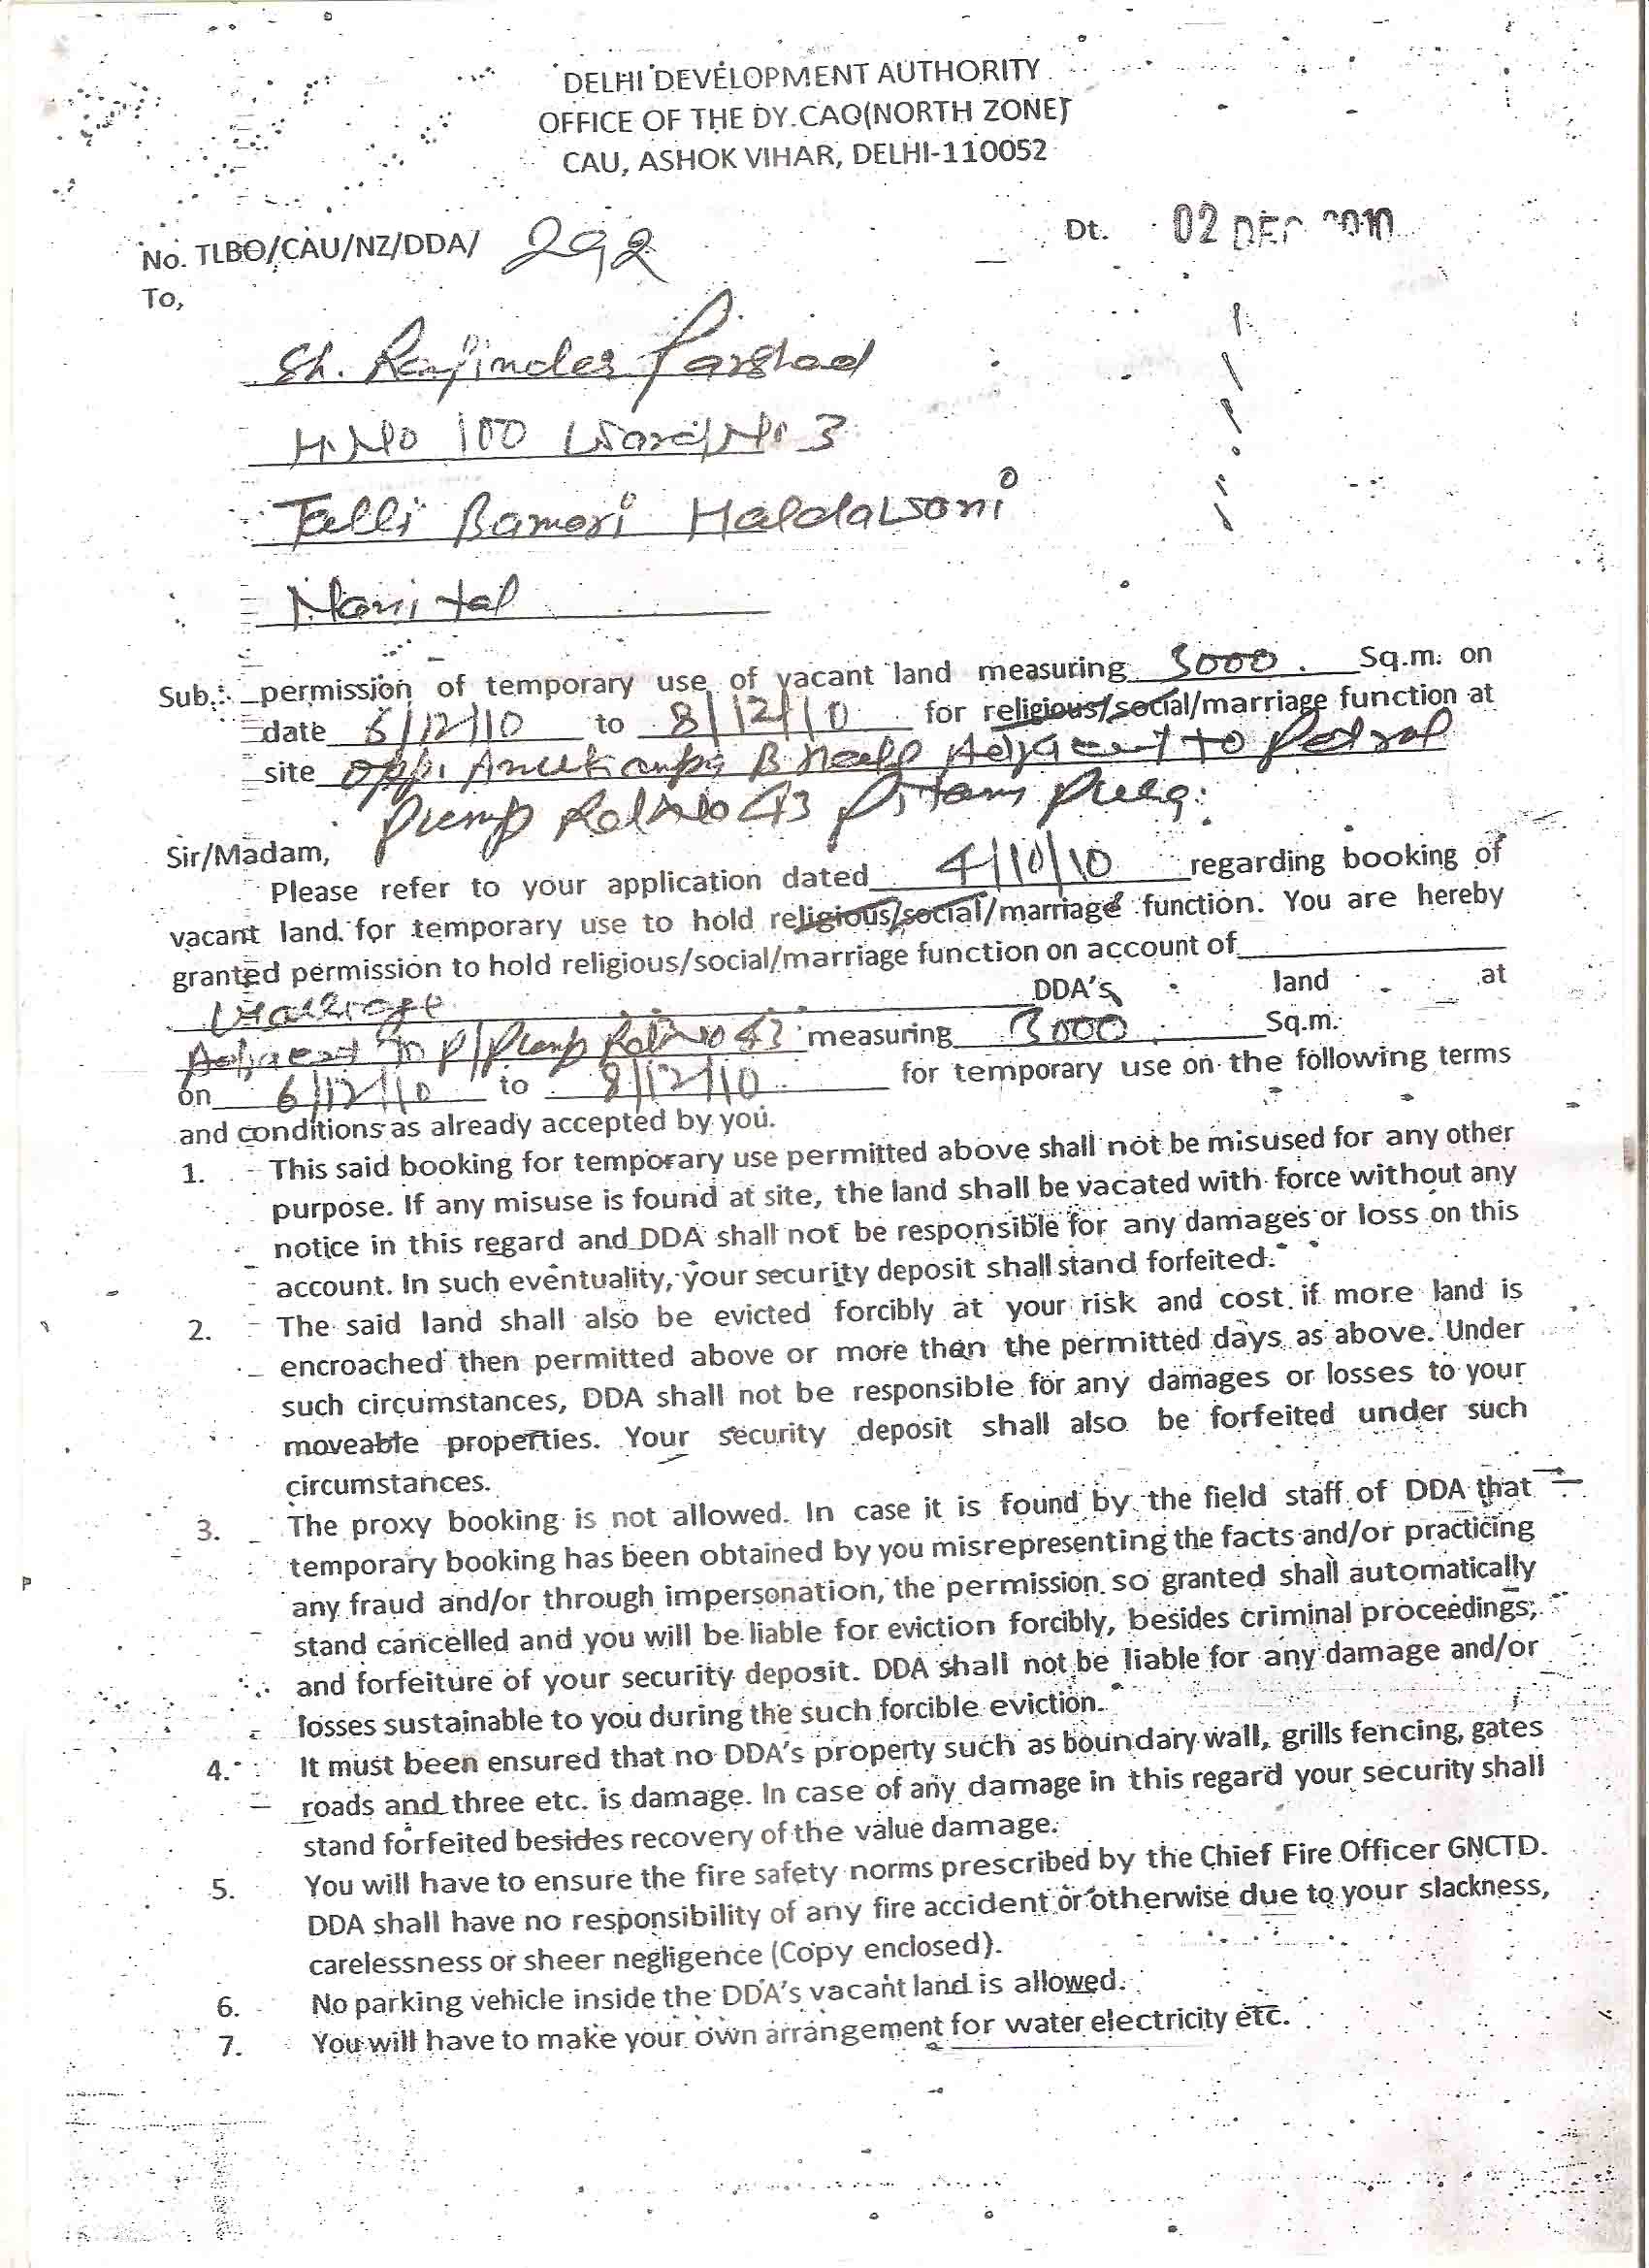 DELHI DEVELOPMENT AUTHORITY
OFFICE OF THE DY.CAO(NORTH ZONE)
CAU, ASHOK VIHAR, DELHI-110052
No. TLBO/CAU/NZ/DDA/ 292 Dt. 02 DEC 2010
To,
Sh. Rajinder Parshad
H.No 100 Ward No 3
Talli Bamori Haldawoni
Nanital
Sub.: permission of temporary use of vacant land measuring 3000. Sq.m. on
date 6/12/10 to 8/12/10 for religious/social/marriage function at
site Opp. Adjacent to Petrol
Pump Rd No 43 Pitam Pura.
Sir/Madam,
Please refer to your application dated 4/10/10 regarding booking of
vacant land for temporary use to hold religious/social/marriage function. You are hereby
granted permission to hold religious/social/marriage function on account of
Marriage DDA's land at
Adjacent to P/Pump Rd No 43 measuring 3000 Sq.m.
on 6/12/10 to 8/12/10 for temporary use on the following terms
and conditions as already accepted by you.
1. This said booking for temporary use permitted above shall not be misused for any other
purpose. If any misuse is found at site, the land shall be vacated with force without any
notice in this regard and DDA shall not be responsible for any damages or loss on this
account. In such eventuality, your security deposit shall stand forfeited.
2. The said land shall also be evicted forcibly at your risk and cost if more land is
encroached then permitted above or more than the permitted days as above. Under
such circumstances, DDA shall not be responsible for any damages or losses to your
moveable properties. Your security deposit shall also be forfeited under such
circumstances.
3. The proxy booking is not allowed. In case it is found by the field staff of DDA that
temporary booking has been obtained by you misrepresenting the facts and/or practicing
any fraud and/or through impersonation, the permission so granted shall automatically
stand cancelled and you will be liable for eviction forcibly, besides criminal proceedings,
and forfeiture of your security deposit. DDA shall not be liable for any damage and/or
losses sustainable to you during the such forcible eviction.
4. It must been ensured that no DDA's property such as boundary wall, grills fencing, gates
roads and three etc. is damage. In case of any damage in this regard your security shall
stand forfeited besides recovery of the value damage.
5. You will have to ensure the fire safety norms prescribed by the Chief Fire Officer GNCTD.
DDA shall have no responsibility of any fire accident or otherwise due to your slackness,
carelessness or sheer negligence (Copy enclosed).
6. No parking vehicle inside the DDA's vacant land is allowed.
7. You will have to make your own arrangement for water electricity etc.